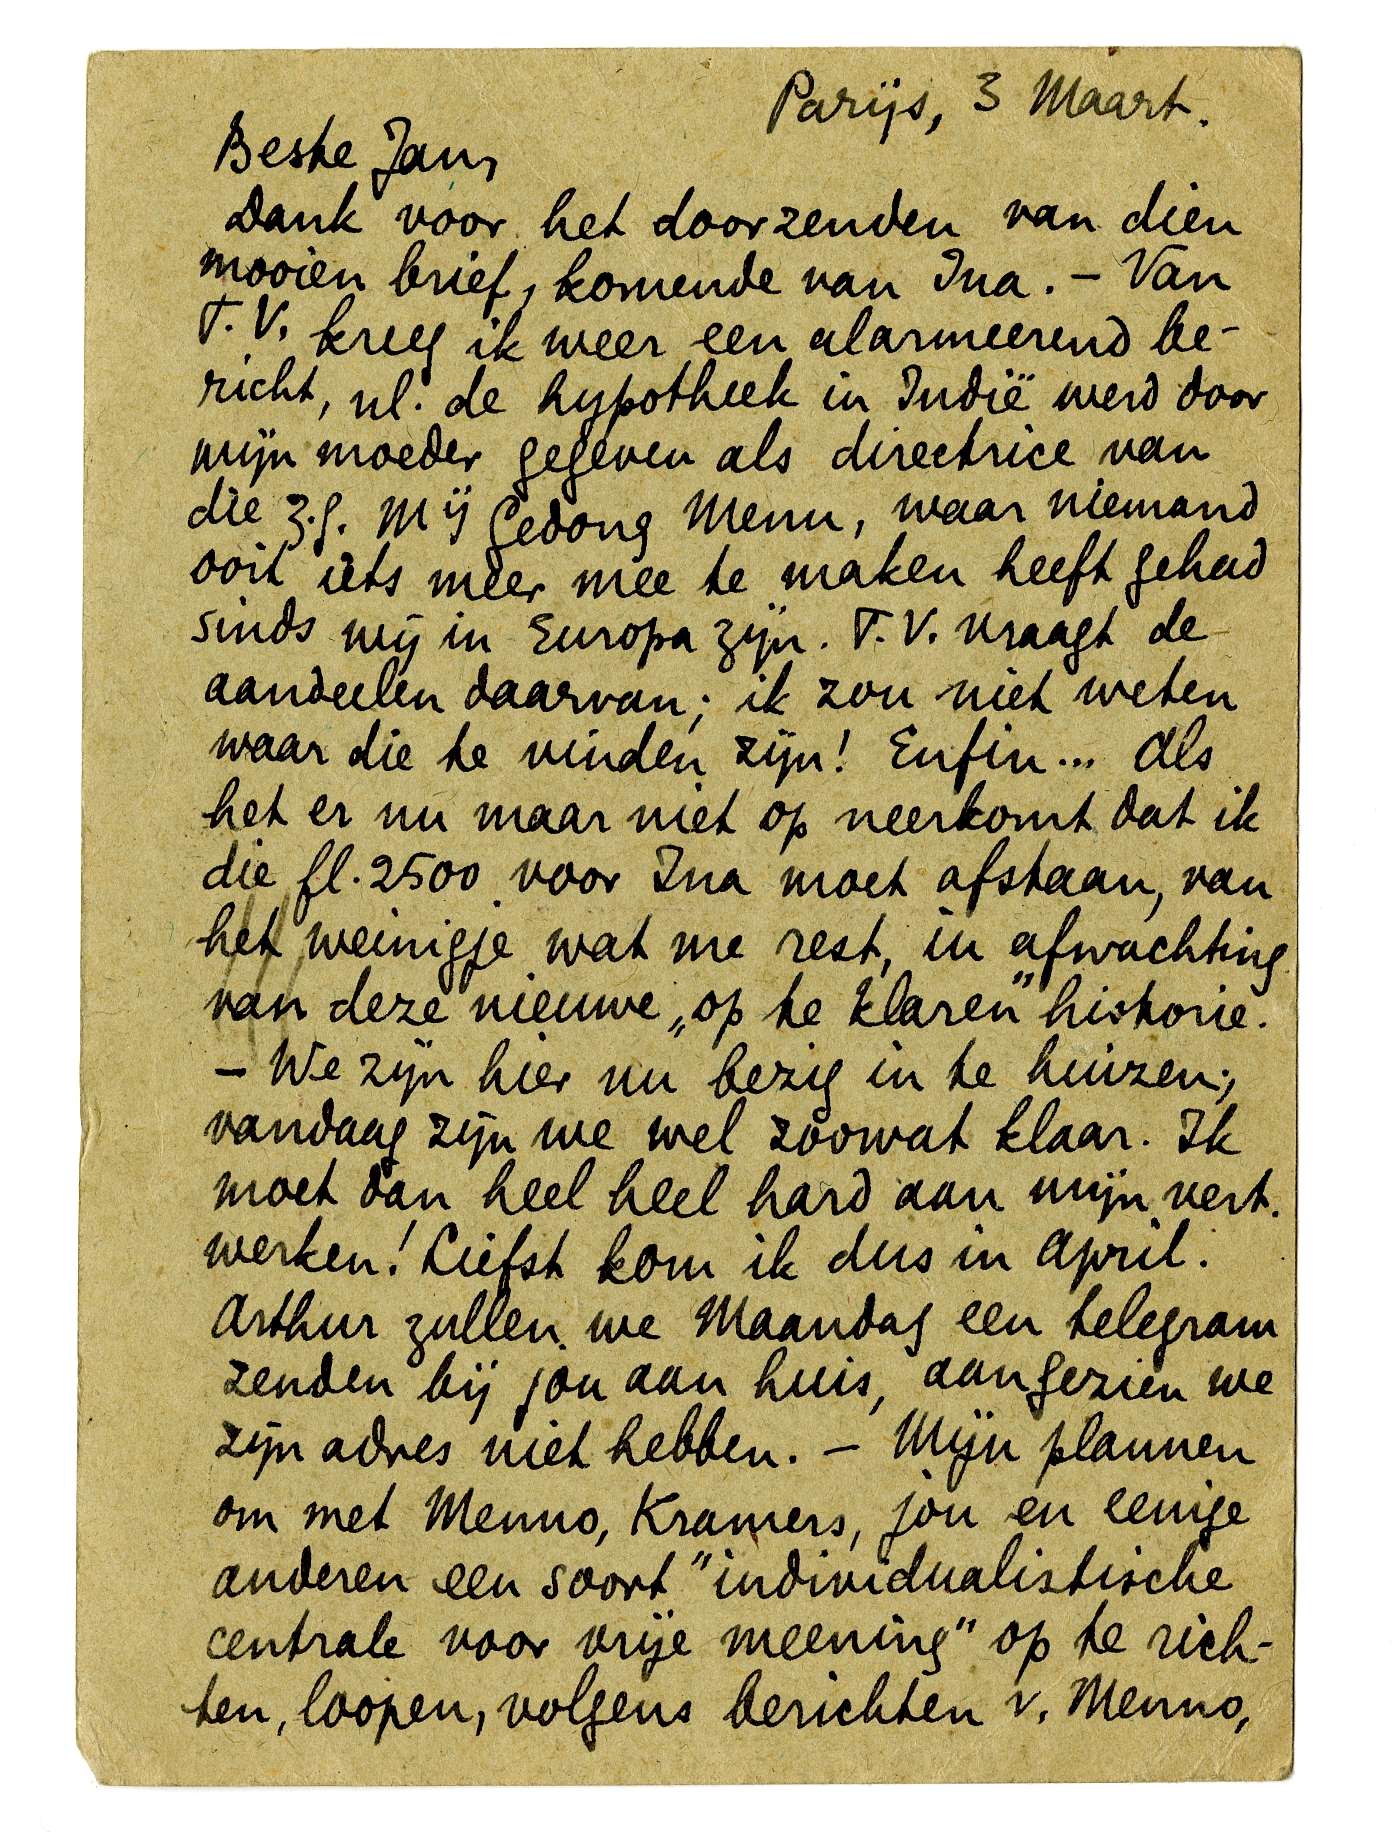 Parijs, 3 Maart.
Beste Jan,
Dank voor het doorzenden van dien
mooien brief, komende van Ina. – Van
T.V. kreeg ik weer een alarmeerend be-
richt, nl. de hypotheek in Indië werd door
mijn moeder gegeven als directrice van
die z.g. Mij Gedong Menu, waar niemand
ooit iets meer mee te maken heeft gehad
sinds wij in Europa zijn. T.V. vraagt de
aandeelen daarvan; ik zou niet weten
waar die te vinden zijn! Enfin... Als
het er nu maar niet op neerkomt dat ik
die fl. 2500 voor Ina moet afstaan, van
het weinigje wat me rest, in afwachting
van deze nieuwe „op te klaren" historie.
– We zijn hier nu bezig in te huizen;
vandaag zijn we wel zoowat klaar. Ik
moet dan heel heel hard aan mijn vert.
werken! Liefst kom ik dus in April.
Arthur zullen we Maandag een telegram
zenden bij jou aan huis, aangezien we
zijn adres niet hebben. – Mijn plannen
om met Menno, Kramers, jou en eenige
anderen een soort "individualistische
centrale voor vrije meening" op te rich-
ten, loopen, volgens berichten v. Menno,